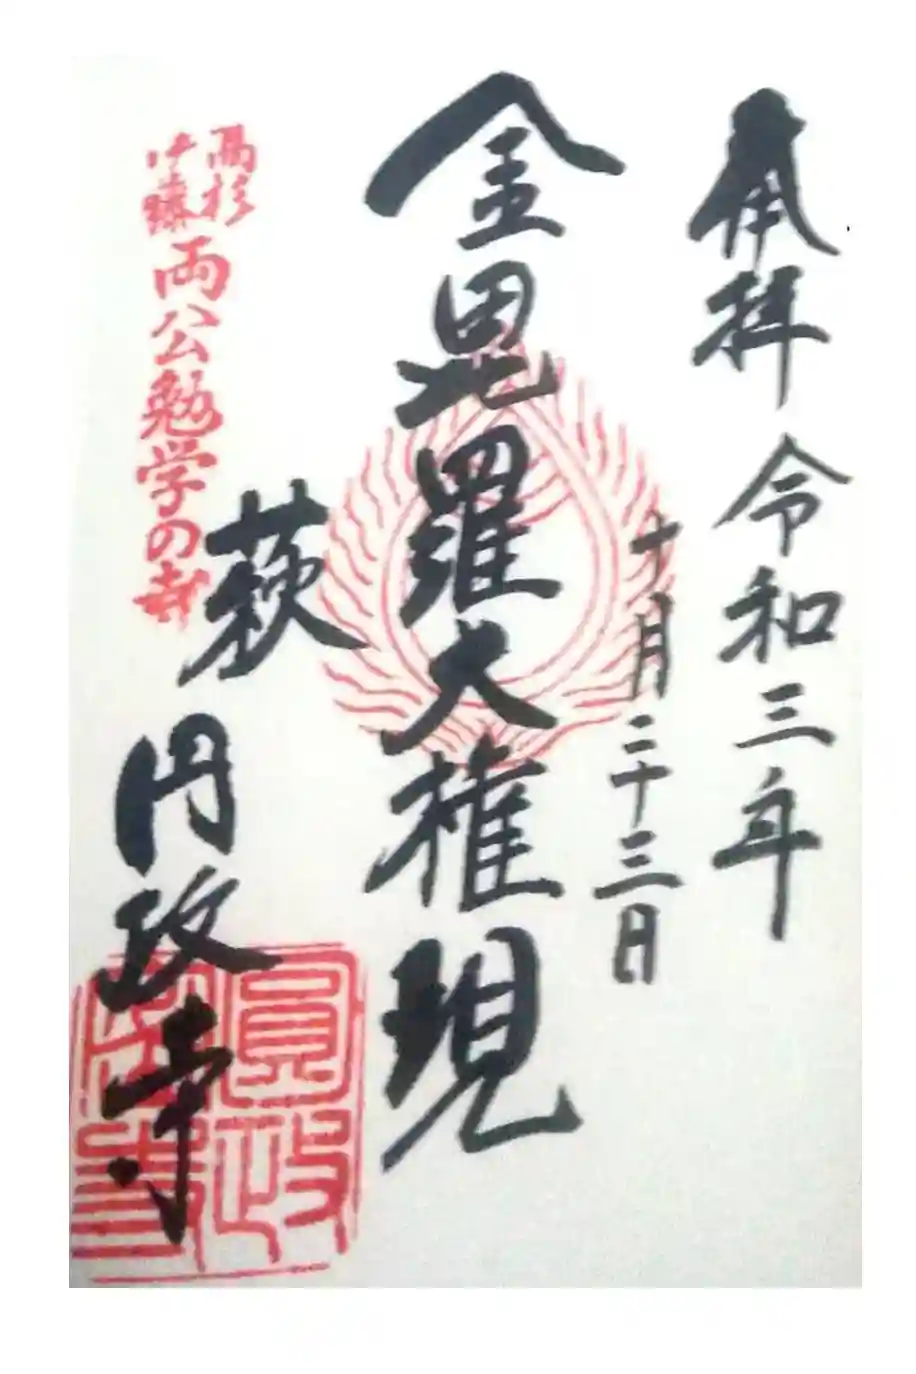 奉拝 令和三年
十月二十三日
金毘羅大権現
萩 円政寺
高杉
伊藤
両公勉学の寺